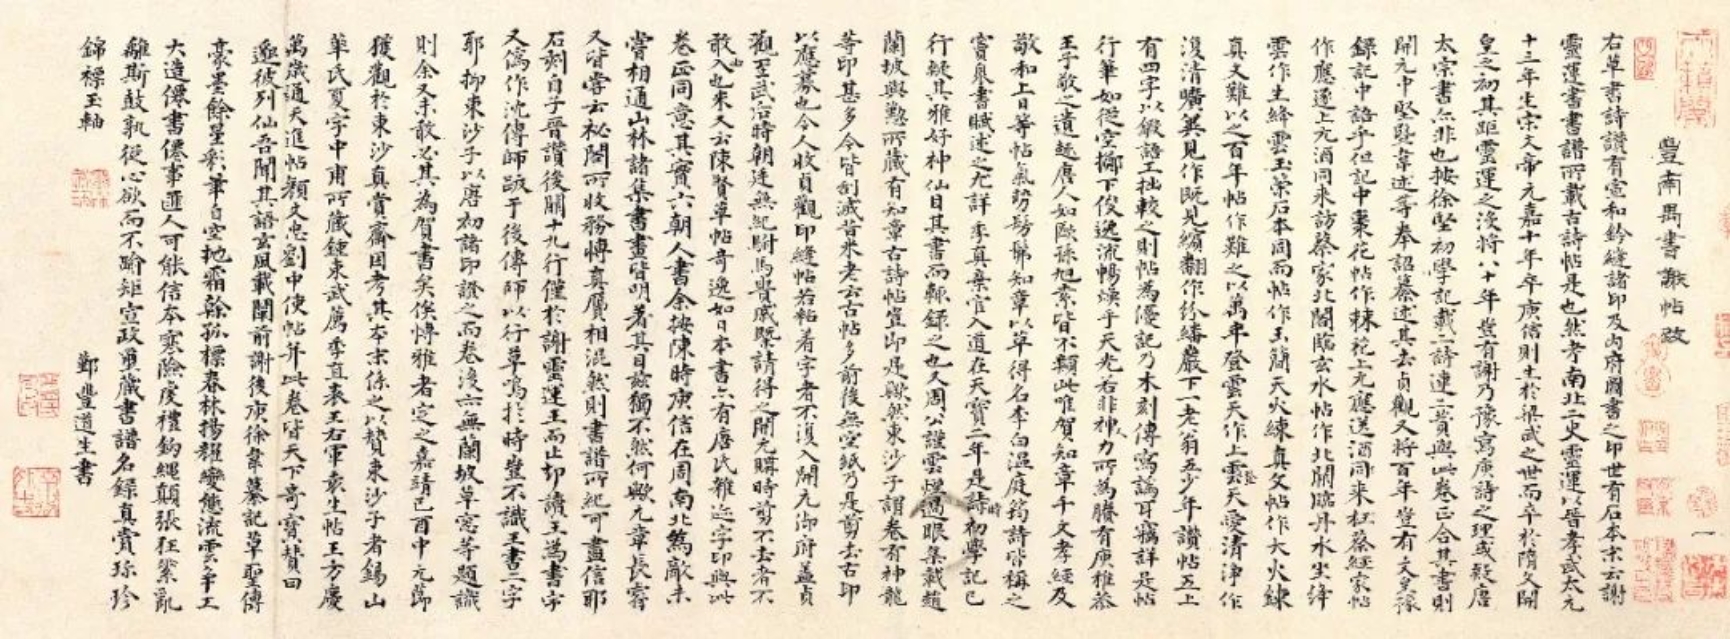 豐南禺書謝帖跋
右草書詩讚有宣和鈐縫諸印及內府圖書之印世有石本末云謝
靈運書書譜所載古詩帖是也然考南北二史靈運以晉孝武太元
十三年生宋文帝元嘉十年卒庾信則生於梁武之世而卒於隋文開
皇之初其距靈運之沒將八十年豈有謝乃豫寫庾詩之理或疑唐
太宗書亦非也按徐堅初學記載二詩連二讚與此卷正合其書則
開元中堅暨韋述等奉詔纂述其去貞觀又將百年豈有文皇豫
錄記中語乎但記中棗花帖作棘花上元應送酒同來枉蔡經家帖
作應逐上元酒同來訪蔡家北閣臨玄水帖作北闕臨丹水坐絳
雲作生絳雲玉策石本同而帖作玉簡天火練真文帖作大火練
真文難以之百年帖作難之以萬年登雲天作上雲天愛清淨作
復清曠巽見作既見繽翻作紛繙巖下一老翁五少年讚帖五上
有四字以緞語工拙較之則帖為優記乃木刻傳寫譌耳竊詳是帖
行筆如從空擲下俊逸流暢煥乎天光若非人力所為賸有庾稚恭
王子敬之遺趣唐人如歐孫旭素皆不類此唯賀知章千文孝經及
敬和上日等帖氣勢髣髴知章以草得名李白溫庭筠詩皆稱之
竇臮書賦述之尤詳季真棄官入道在天寶二年是時初學記已
行疑其雅好神仙目其書而輒錄之也又周公謹雲煙過眼集載趙
蘭坡與懃所藏有知章古詩帖豈即是歟然東沙子謂卷有神龍
等印甚多今皆刮滅昔米老云古帖多前後無空紙乃是剪去古印
以應募也今人收貞觀印縫帖若粘着字者不復入開元御府蓋貞
觀至武后時朝廷無紀駙馬貴戚丐請得之開元購時剪不去者不
敢入也米又云陳賢草帖奇逸如日本書亦有唐氏雜迹字印與此
卷正同意其實六朝人書余按陳時庾信在周南北為敵未
嘗相通山林諸集書畫皆明著其目玆獨不然何歟元章長睿
又皆嘗云秘閣所收務博真贋相混然則書譜所紀可盡信耶
石刻自子晉讚後闕十九行僅於謝靈運王而止却讀王為書字
又偽作沈傳師跋于後傳師以行草鳴於時豈不識王書二字
耶抑東沙子以唐初諸印證之而卷後亦無蘭坡草窓等題識
則余又未敢必其為賀書矣俟博雅者定之嘉靖己酉中元節
獲觀於東沙真賞齋因考其本末係之以贊東沙子者錫山
華氏夏字中甫所藏鍾太傅薦季直表王右軍袁生帖王方慶
萬歲通天進帖顏文忠劉中使帖并此卷皆天下奇寶贊曰
邈彼列仙吾聞其語玄風載闡前謝後庾徐韋纂記草聖傳
豪墨餘星彩筆自空抛霜榦孤標春林揚耀變態流雲乎工
大造僊書僊事匪人可能信本寒險度禮鉤繩顛張狂素亂
離斯鼓孰從心欲而不踰矩宣政爰藏書譜名錄真賞珎珍
錦標玉軸
鄞豐道生書